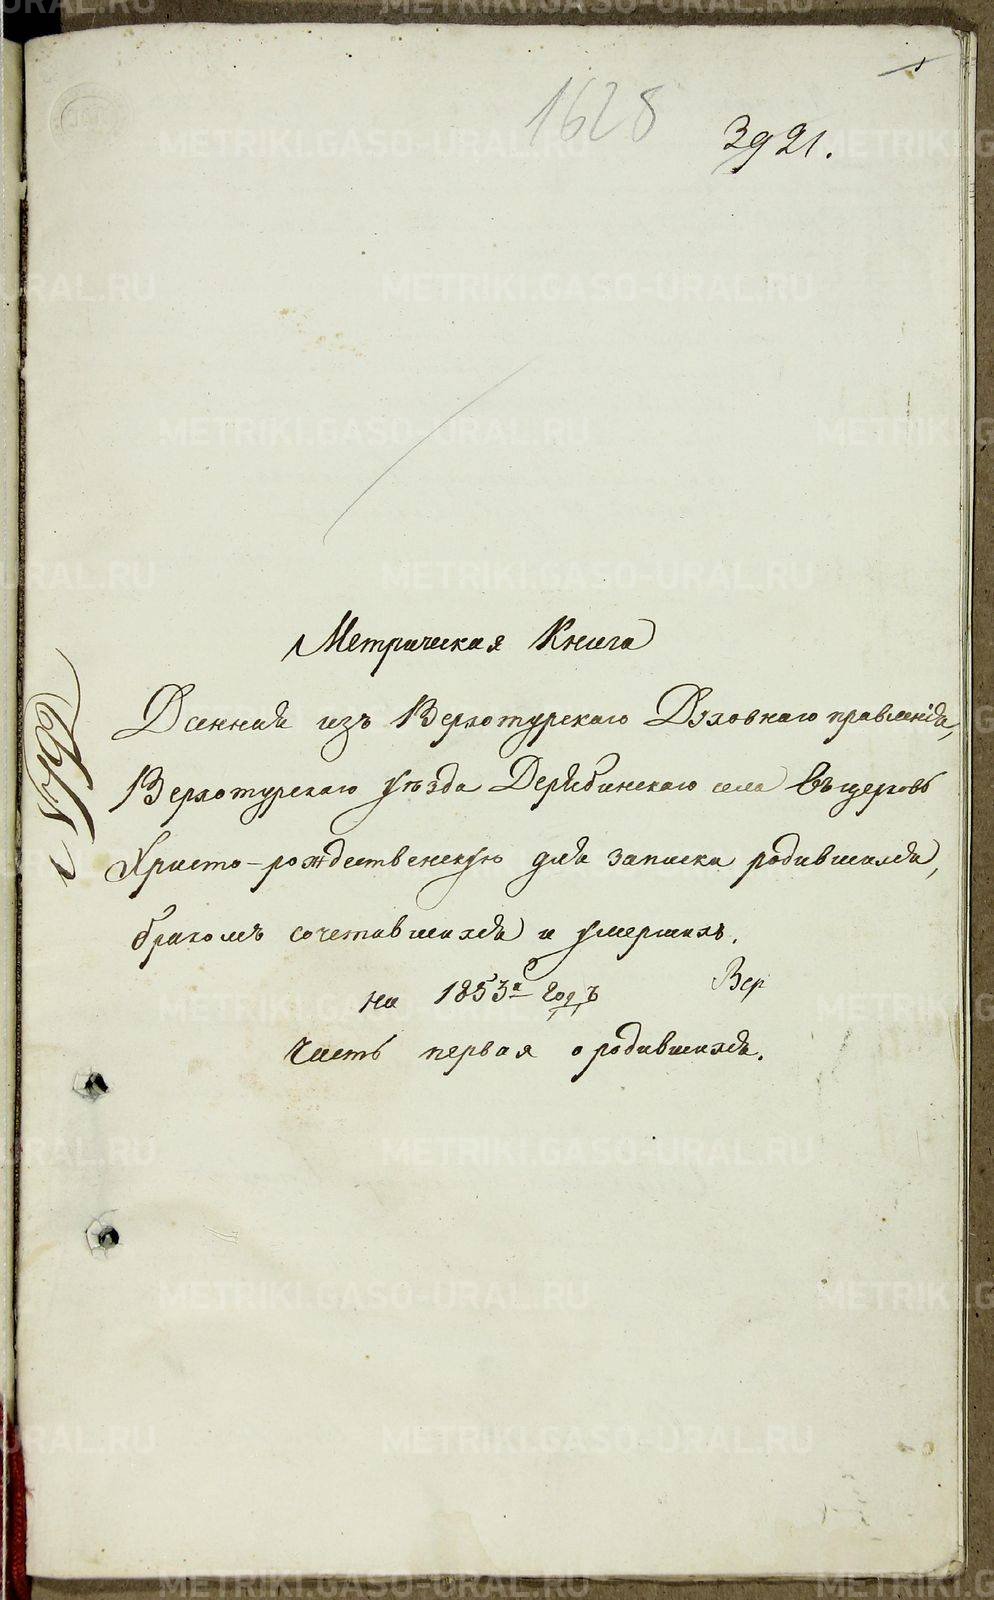 1
1628
3921.
Метрическая Книга
Данная изъ Верхотурскаго Духовнаго правленія,
Верхотурскаго уѣзда Дерябинскаго села въ церковь
Христо-рождественскую для записки родившихся,
бракомъ сочетавшихся и умершихъ.
на 1853й Годъ
Вер
Часть первая о родившихся.
METRIKI.GASO-URAL.RU